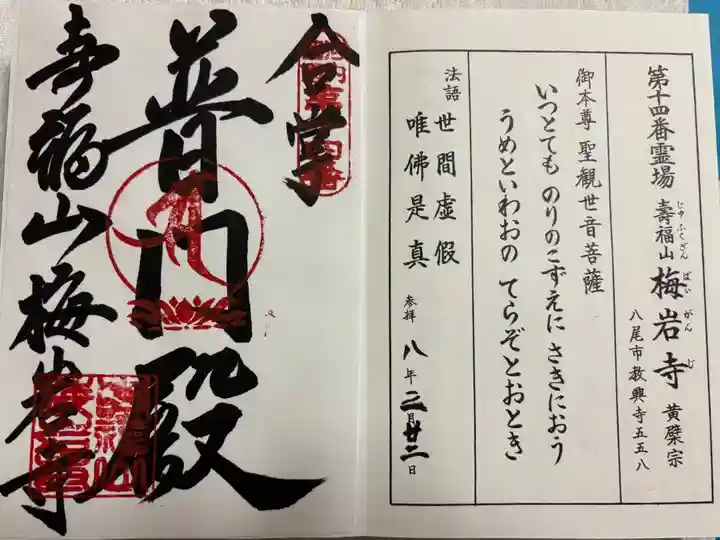 第十四番霊場
壽福山 梅岩寺 黄檗宗
じゅふくざん ばいがんじ
八尾市教興寺五五八
御本尊 聖観世音菩薩
いつとても のりのこずえに さきにおう
うめといわおの てらぞとおとき
法語 世間虚假
唯佛是真
参拝 八年二月廿二日
合掌
普門殿
壽福山梅岩寺